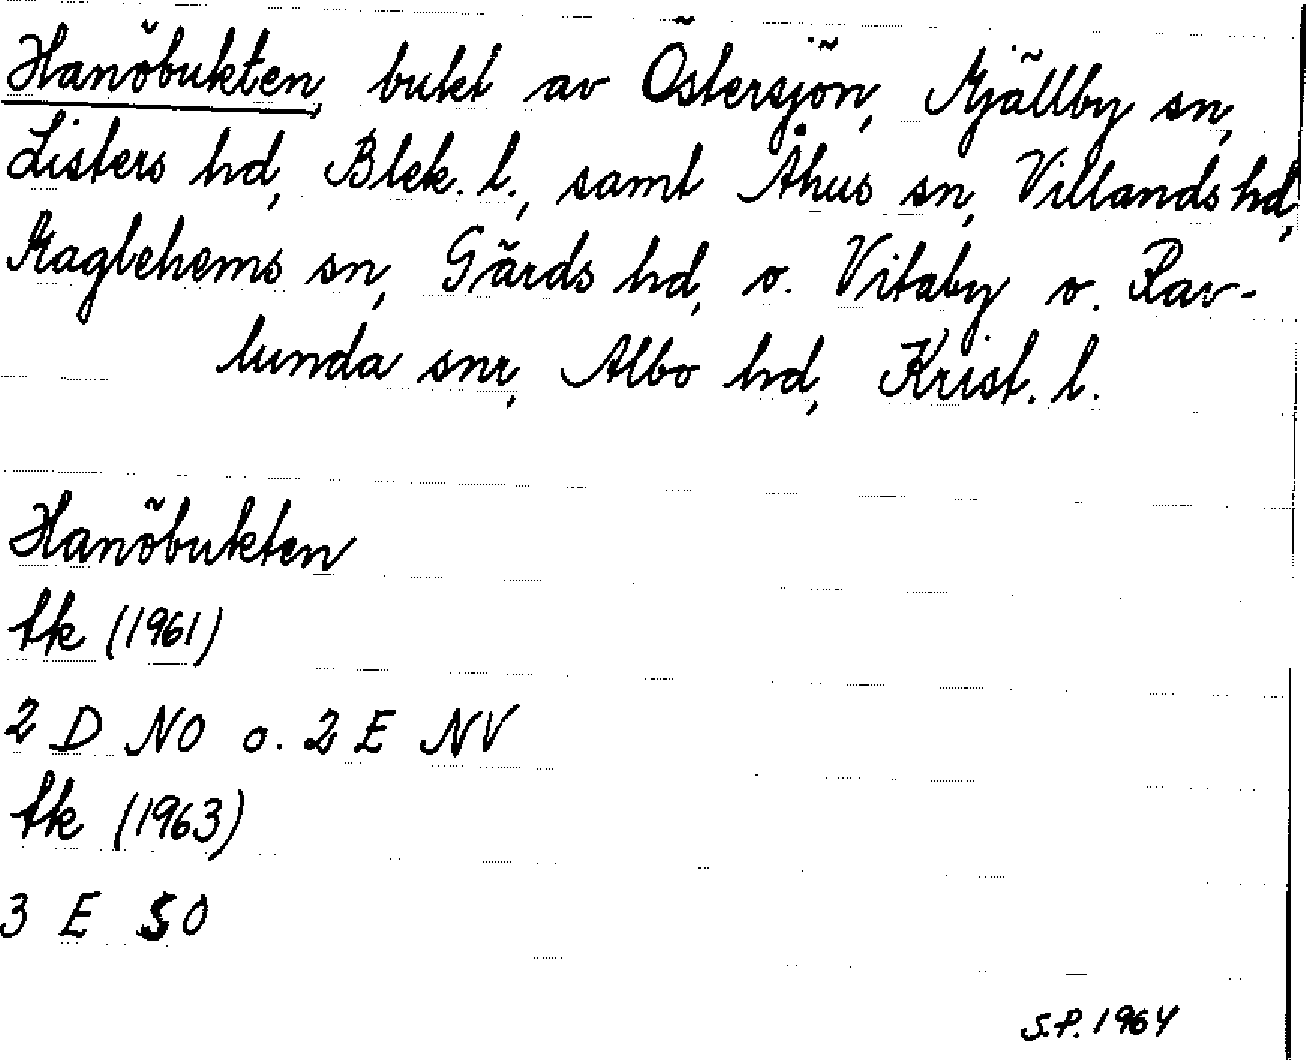 Hanöbukten, bukt av Östersjön, Mjällby sn,
Listers hd, Blek. l., samt Åhus sn, Villands hd,
Maglehems sn, Gärds hd, o. Vitaby o. Rav-
lunda snr, Albo hd, Krist. l.
Hanöbukten
tk (1961)
2 D NO o. 2 E NV
tk (1963)
3 E SO
S.P. 1964